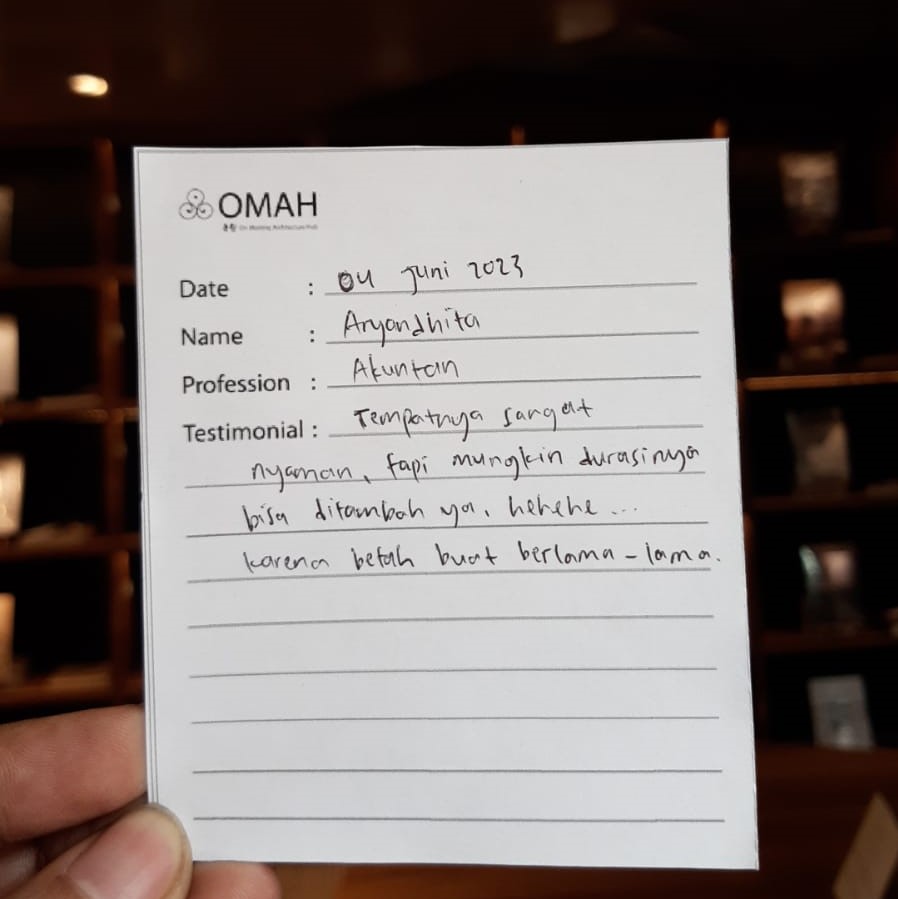 OMAH
Date : 04 Juni 2023
Name : Aryandhita
Profession : Akuntan
Testimonial : Tempatnya sangat
nyaman, tapi mungkin durasinya
bisa ditambah ya, hehehe...
karena betah buat berlama-lama.